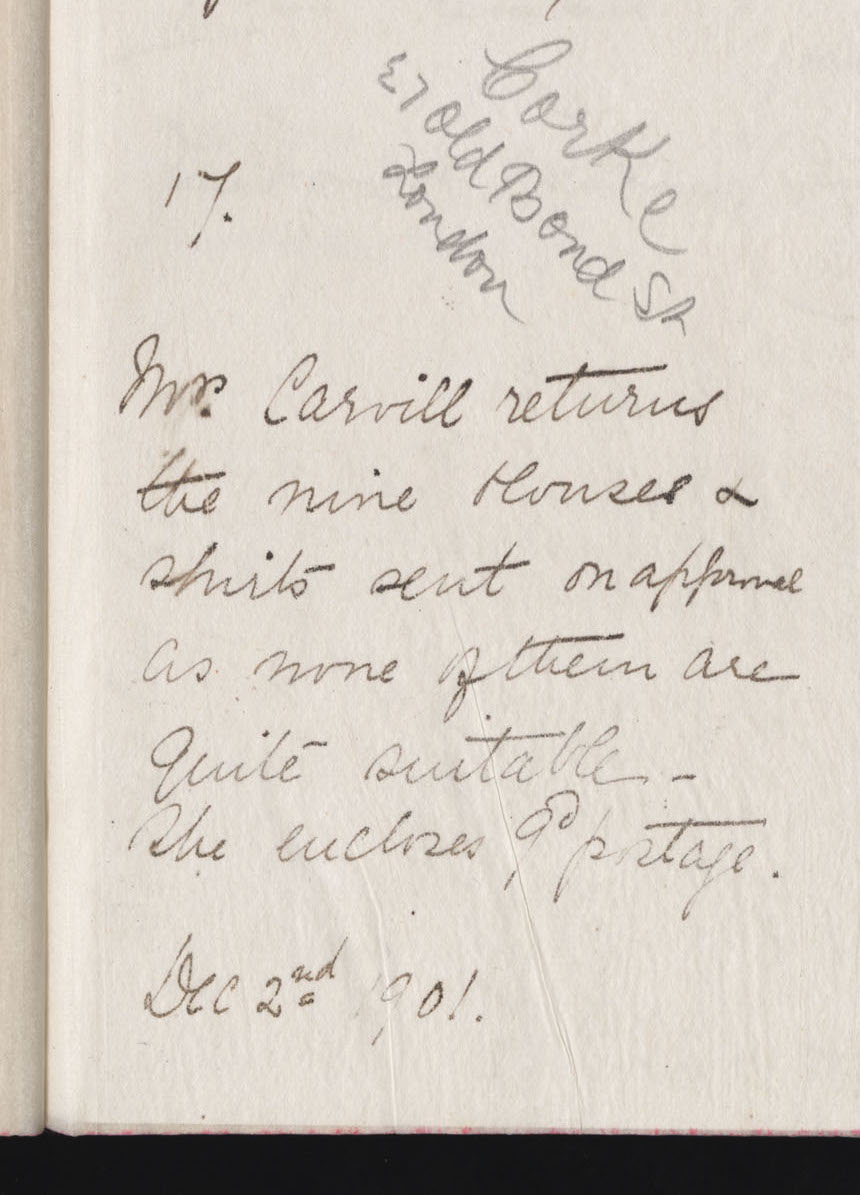 Corke
27 Old Bond St
London
17.
Mrs. Carvill returns
the nine blouses &
shirts sent on approval
as none of them are
quite suitable -
She encloses 9d postage.
Dec 2nd 1901.